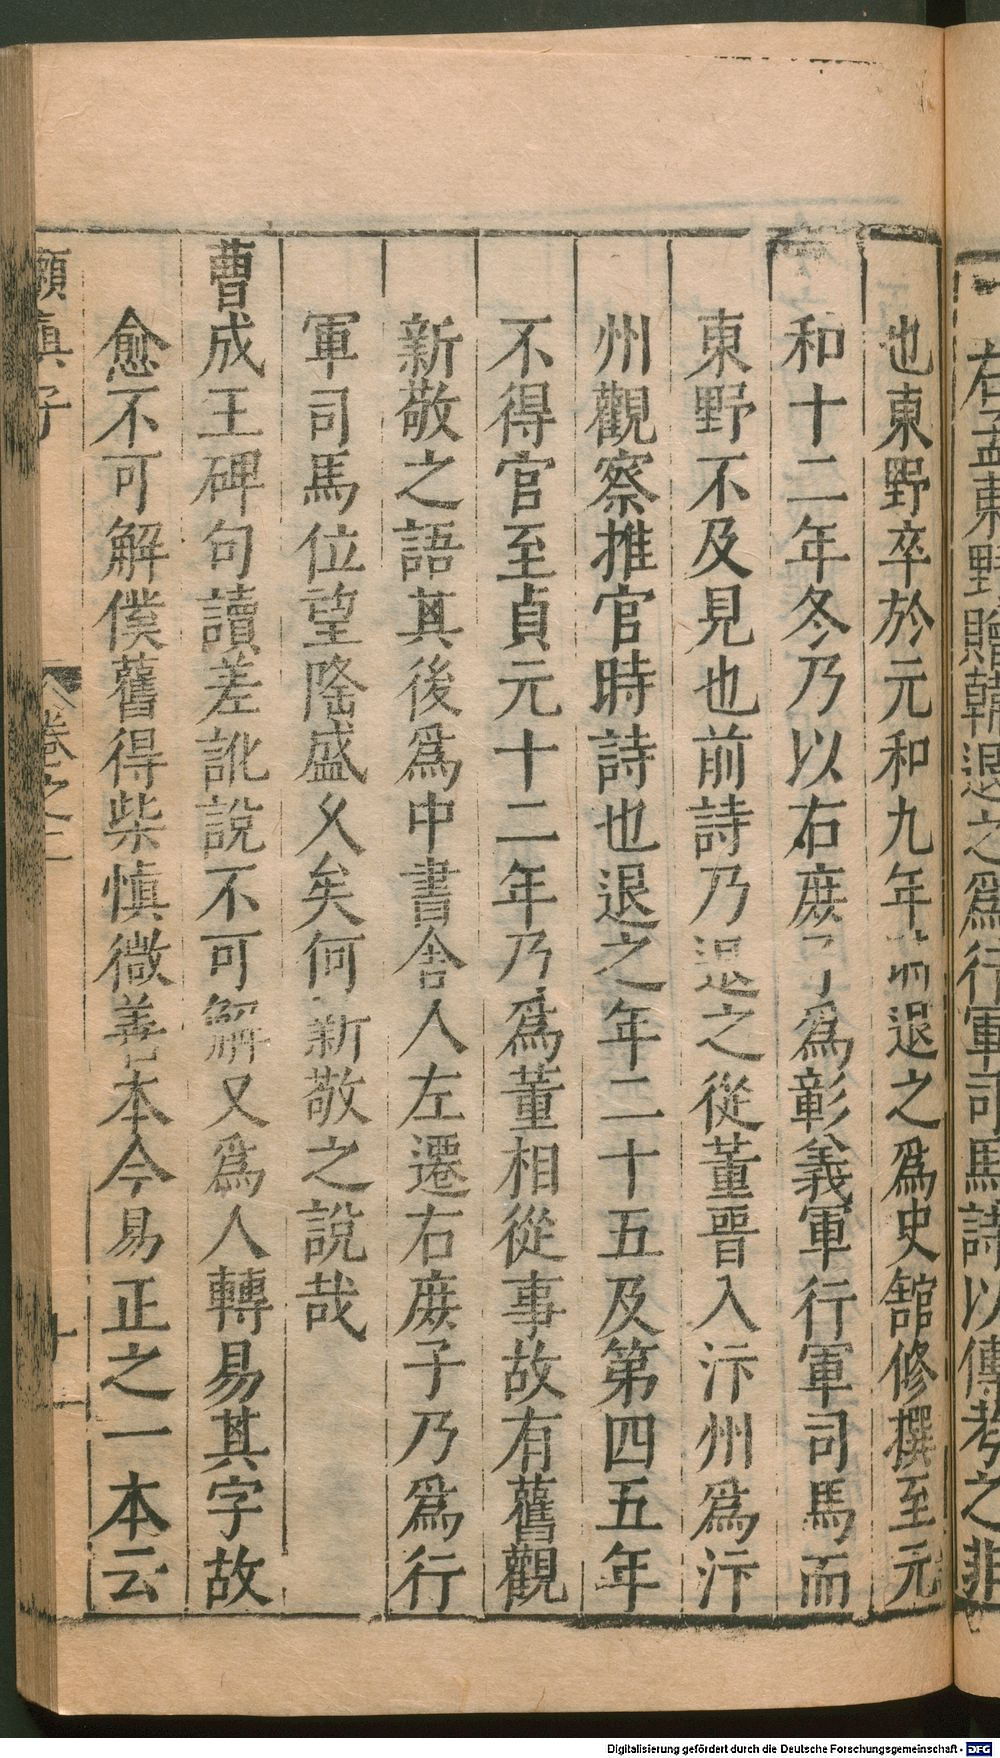 右孟東野贈韓退之為行軍司馬詩以傳考之非
也東野卒於元和九年時退之爲史館修撰至元
和十二年冬乃以右庶子爲彰義軍行軍司馬而
東野不及見也前詩乃退之從董晋入汴州爲汴
州觀察推官時詩也退之年二十五及第四五年
不得官至貞元十二年乃爲董相從事故有舊觀
新敬之語其後爲中書舍人左遷右庶子乃爲行
軍司馬位望隆盛久矣何新敬之說哉
曹成王碑句讀差訛說不可解又爲人轉易其字故
愈不可解僕舊得柴慎微善本今易正之一本云
嬾真子
卷之二
十一
Digitalisierung gefördert durch die Deutsche Forschungsgemeinschaft - DFG